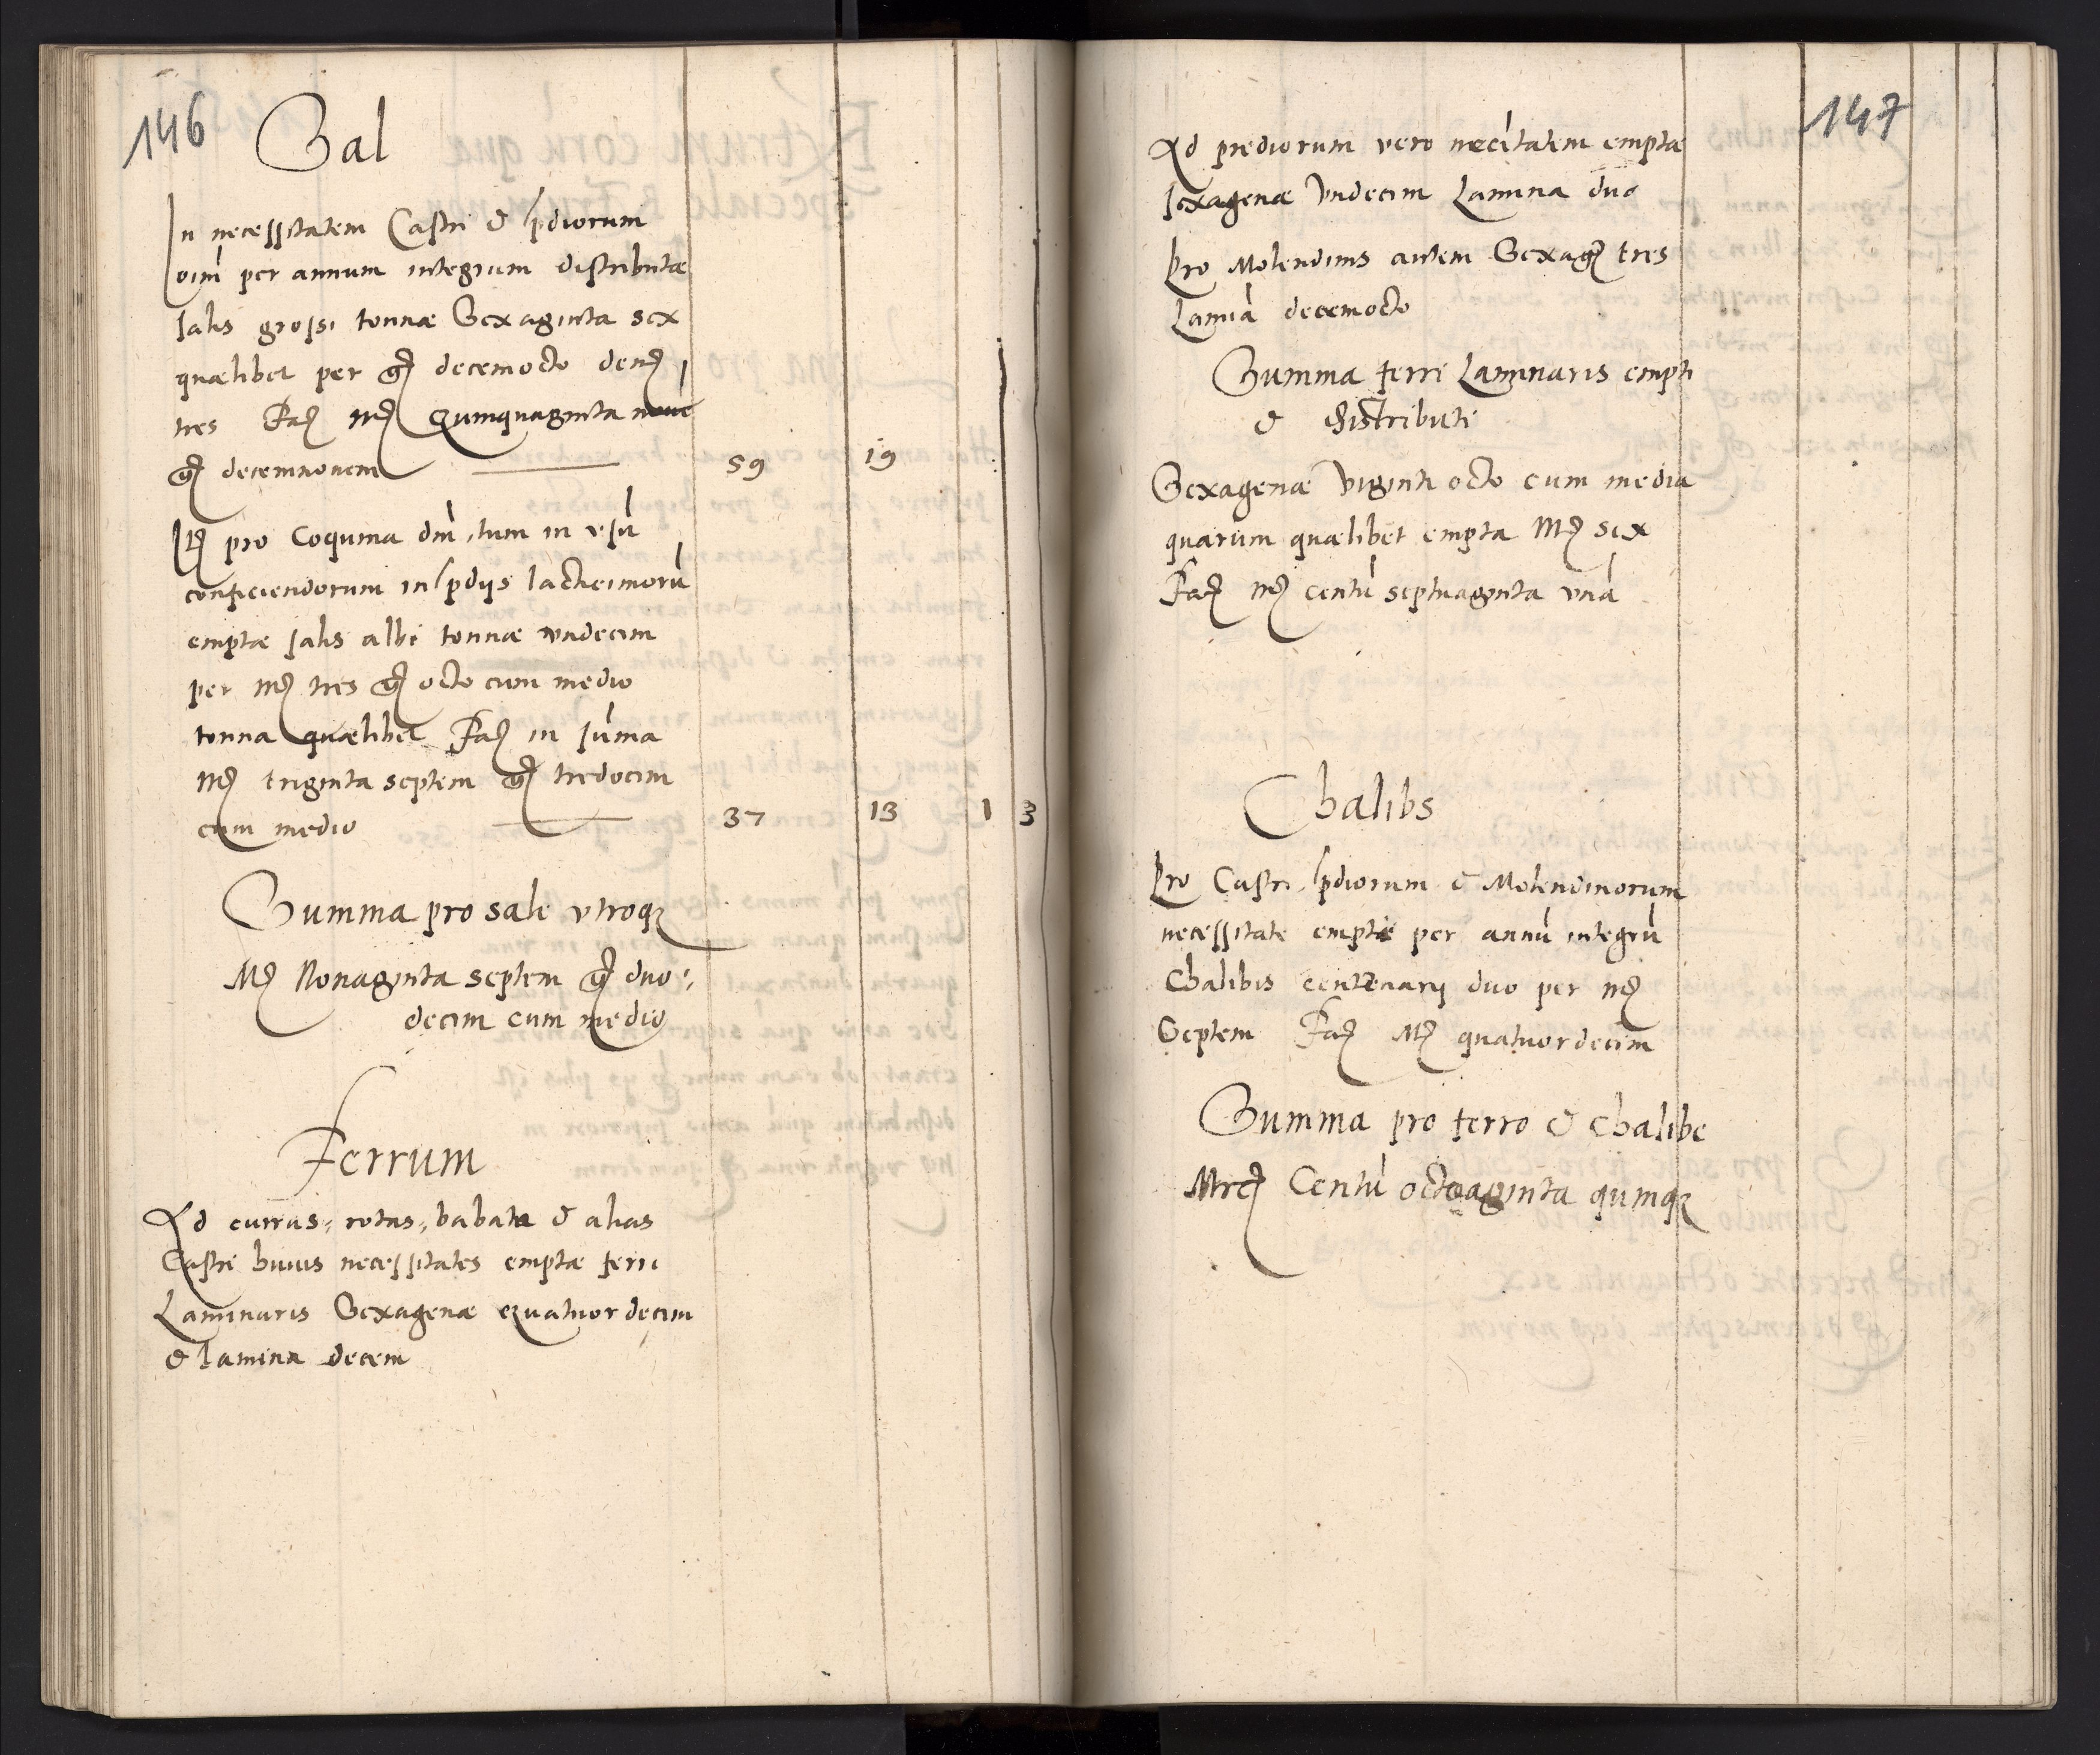 146
Sal
In necessitatem Castri & pdiorum
oim per annum integrum distributæ
salis grossi tonnæ Sexaginta sex
quælibet per gr decemocto den
tres Fac mr Quinquaginta nove
gr decemnovem 59 19
It pro Coquina dni, tum in usu
conficiendorum in pdijs lacticinioru
emptæ salis albi tonnæ undecim
per mr tres gr octo cum medio
tonna quælibet Fac in suma
mr triginta septem gr tredecim
cum medio 37 13 1 3
Summa pro sale utroq
Mr Nonaginta septem gr duo
decim cum medio
Ferrum
Ad currus, rotas, babata & alias
Castri huius necessitates emptæ ferri
Laminaris Sexagenæ Quatuordecim
& lamina decem
147
Ad prediorum vero necitatem emptæ
sexagenæ Undecim Lamina duo
Pro Molendinis autem Sexag tres
Lamia decemocto
Summa ferri Laminaris empti
& distributi
Sexagenæ Viginti octo cum media
quarum quælibet empta Mr sex
Fac mr centu septuaginta una
Chalibs
Pro Castri, pdiorum & Molendinorum
necessitate emptæ per annu integru
Chalibis centenarij duo per mr
Septem Fac Mr quatuordecim
Summa pro ferro & Chalibe
Mrc Centu octoaginta quinq